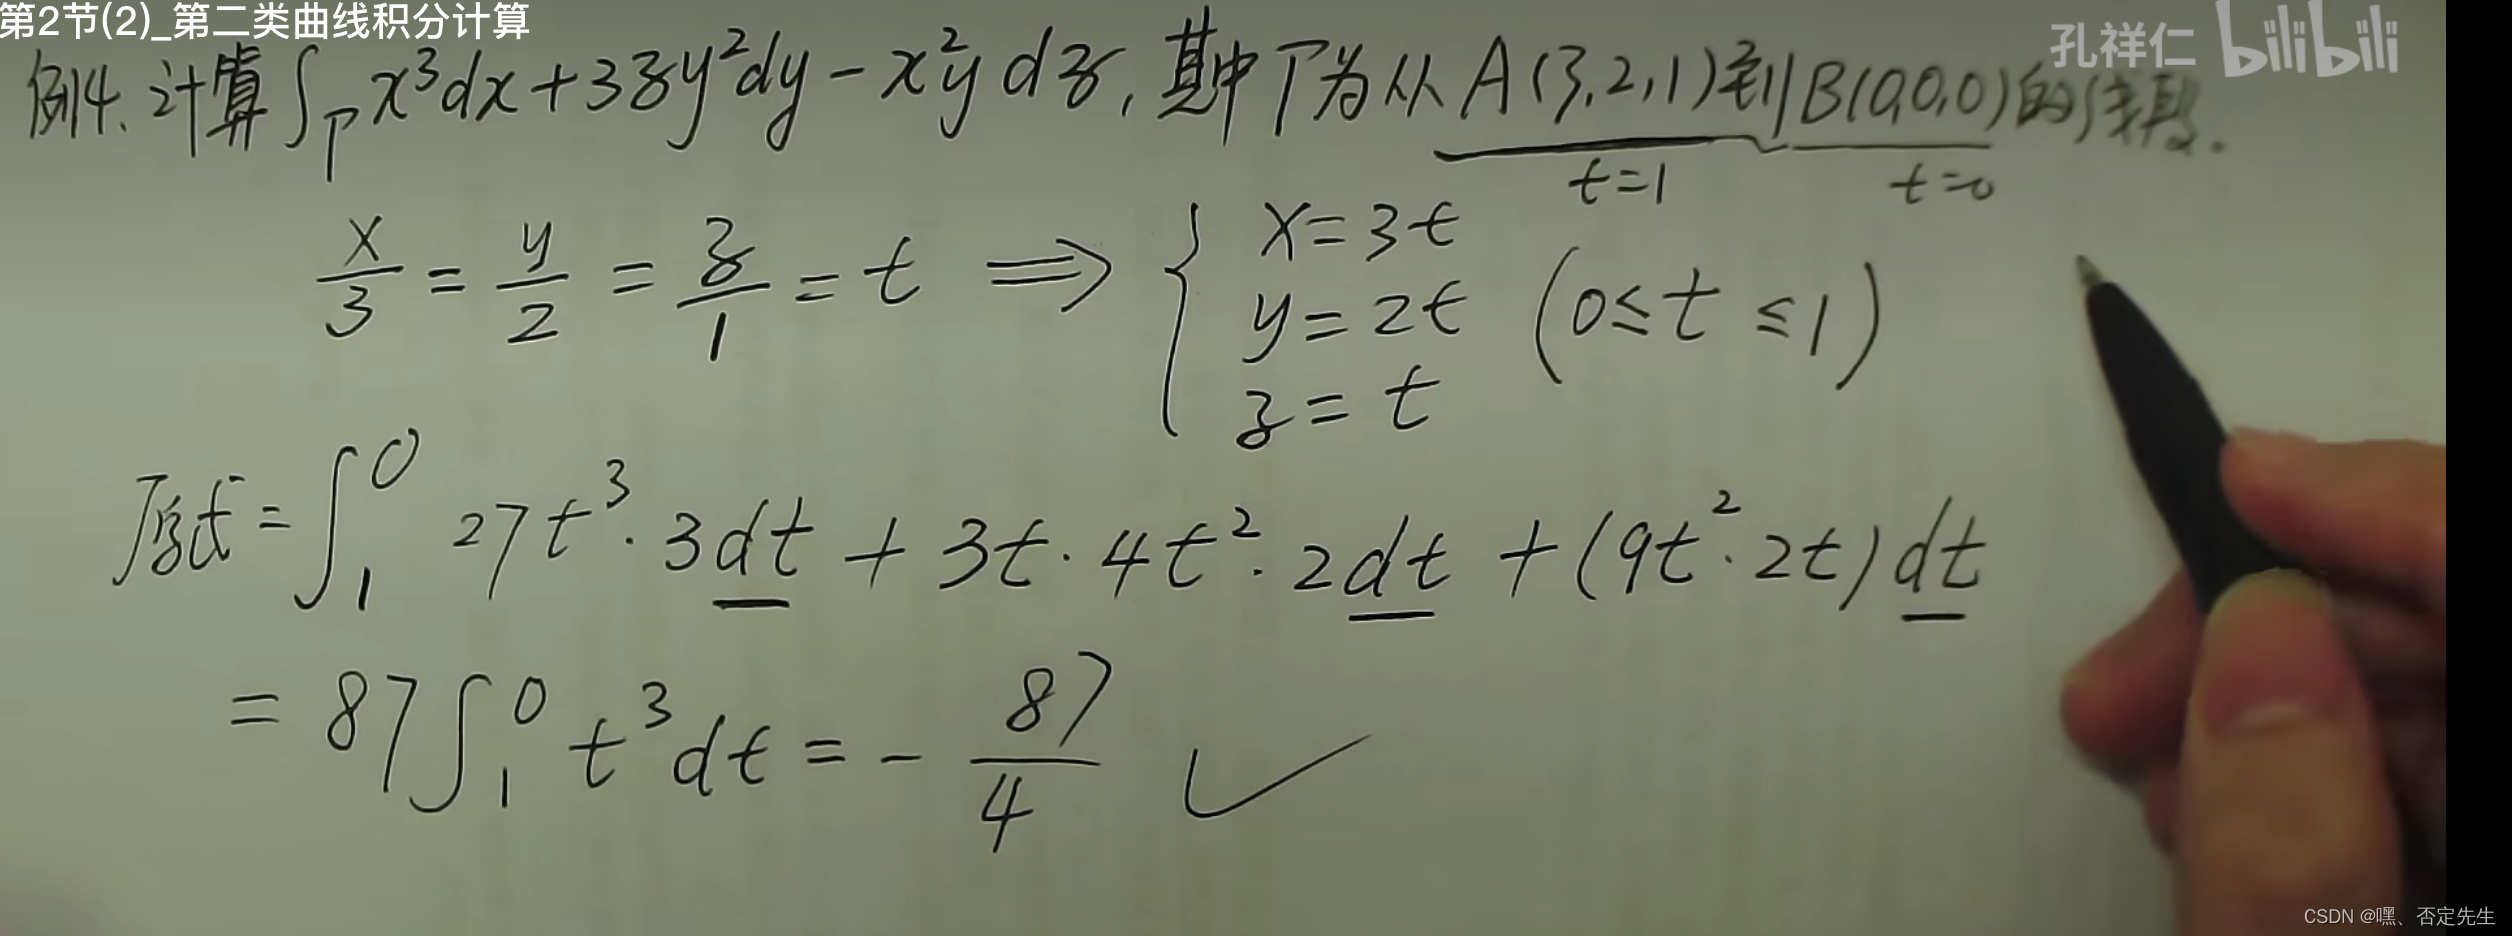 第2节(2)_第二类曲线积分计算
孔祥仁 bilibili
例4. 计算 ∫_Γ x³dx+3zy²dy-x²ydz, 其中Γ为从A(3,2,1)到B(0,0,0)的线段.
t=1 t=0
x/3 = y/2 = z/1 = t ⟹ { x=3t
y=2t (0≤t≤1)
z=t
原式=∫₁⁰ 27t³·3dt+3t·4t²·2dt+(9t²·2t)dt
=87∫₁⁰ t³dt=-87/4 ✓
CSDN @嘿、否定先生